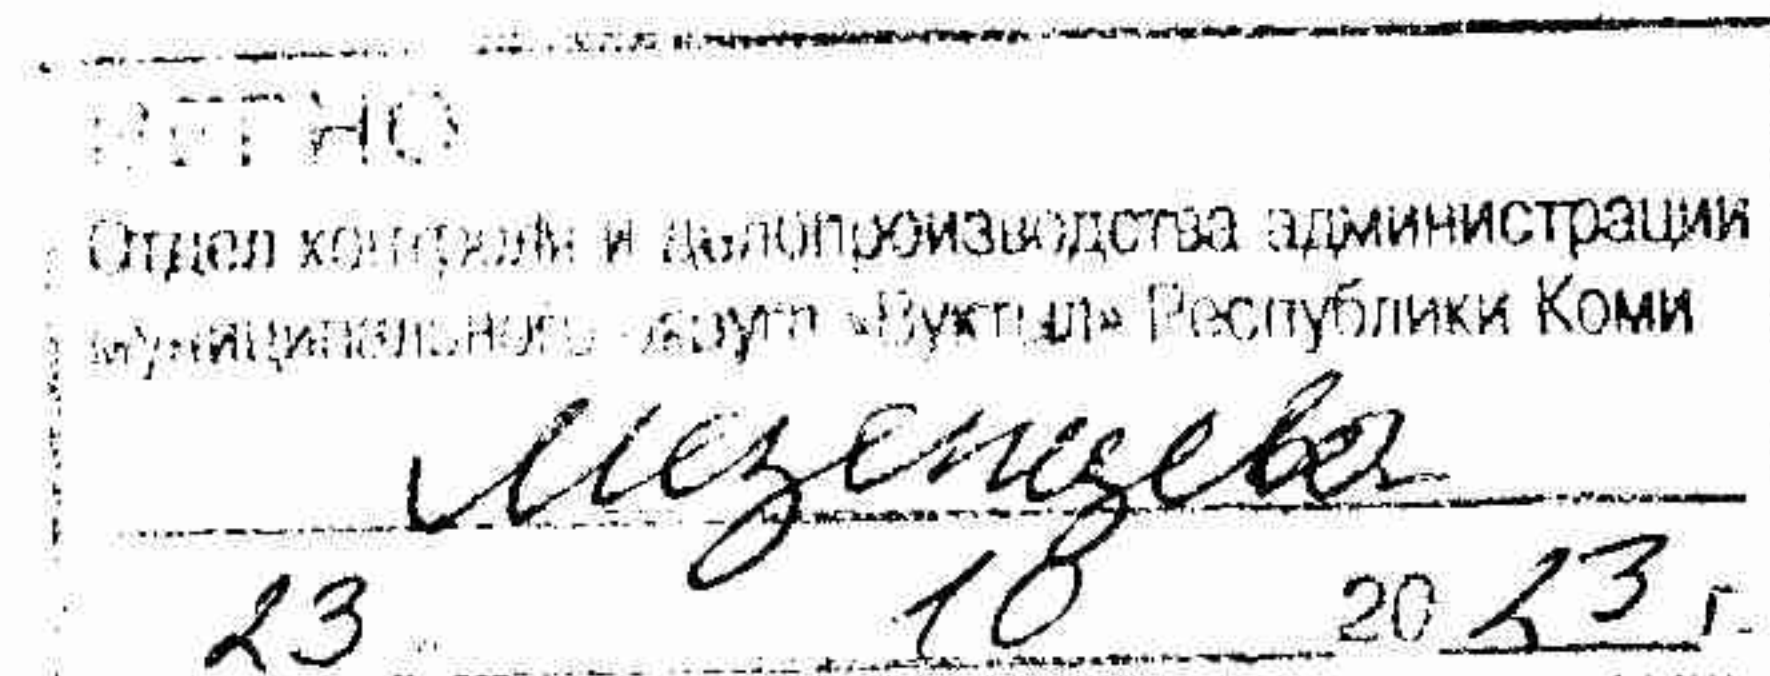 ВЕРНО
Отдел контроля и делопроизводства администрации
муниципального округа «Вуктыл» Республики Коми
Мезенцева
23 10 2023 г.